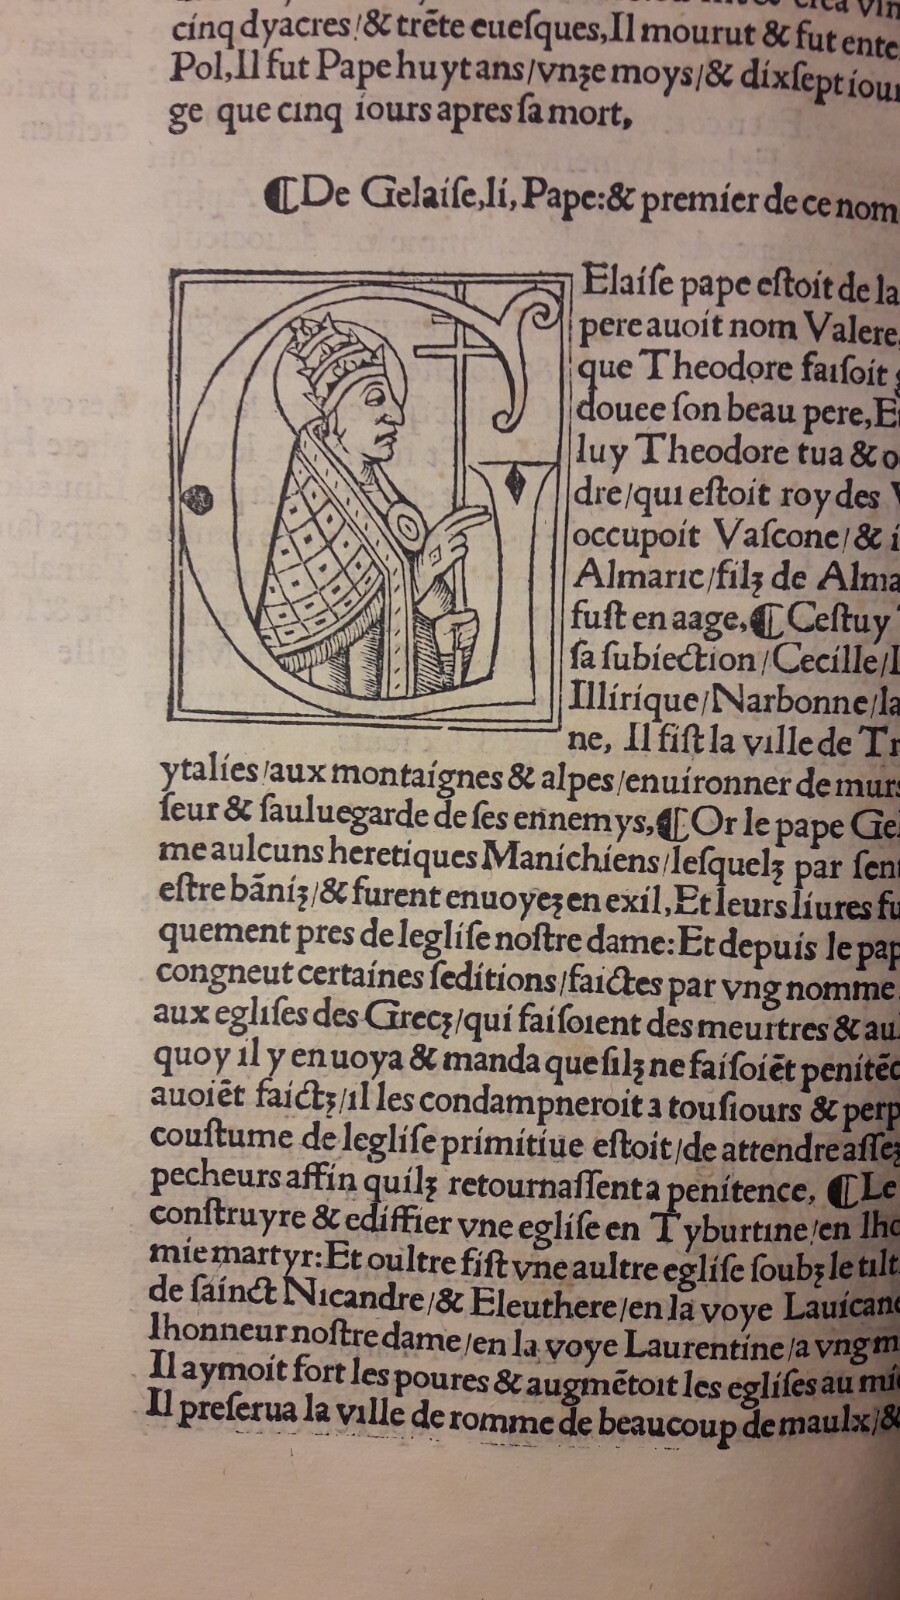 cinq dyacres/& trēte eueſques,Il mourut & fut ente
Pol,Il fut Pape huyt ans/vnʒe moys/& dixſept iour
ge que cinq iours apres ſa mort,
¶De Gelaiſe,li,Pape:& premier de ce nom
Elaiſe pape eſtoit de la
pere auoit nom Valere,
que Theodore faiſoit
douee ſon beau pere,E
luy Theodore tua & o
dre/qui eſtoit roy des V
occupoit Vaſcone/& i
Almaric/filʒ de Alma
fuſt en aage,¶Ceſtuy
ſa ſubiection/Cecille/I
Illirique/Narbonne/la
ne, Il fiſt la ville de Tr
ytalies/aux montaignes & alpes/enuironner de murs
ſeur & ſauluegarde de ſes ennemys,¶Or le pape Gel
me aulcuns heretiques Manichiens/leſquelʒ par ſent
eſtre bāniʒ/& furent enuoyeʒ en exil,Et leurs liures fu
quement pres de legliſe noſtre dame:Et depuis le pap
congneut certaines ſeditions/faictes par vng nomme
aux egliſes des Grecʒ/qui faiſoient des meurtres & au
quoy il y enuoya & manda que ſilʒ ne faiſoiēt penitēc
auoiēt faictʒ/il les condampneroit a touſiours & perp
couſtume de legliſe primitiue eſtoit/de attendre aſſeʒ
pecheurs affin quilʒ retournaſſent a penitence, ¶Le
conſtruyre & ediffier vne egliſe en Tyburtine/en lho
mie martyr:Et oultre fiſt vne aultre egliſe ſoubʒ le tilt
de ſainct Nicandre/& Eleuthere/en la voye Lauicane
lhonneur noſtre dame/en la voye Laurentine/a vng m
Il aymoit fort les poures & augmētoit les egliſes au mi
Il preſerua la ville de romme de beaucoup de maulx/&